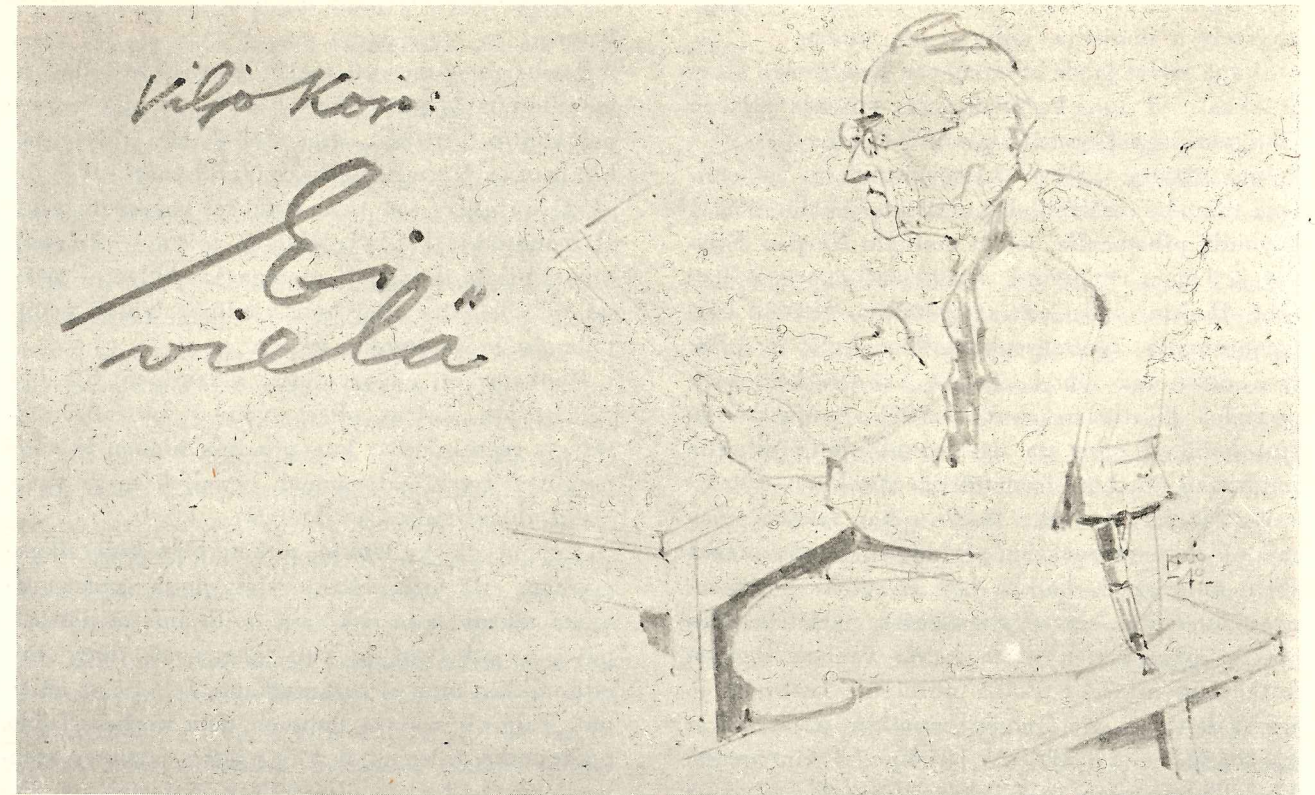 Viljo Kojo:
Ei
vielä